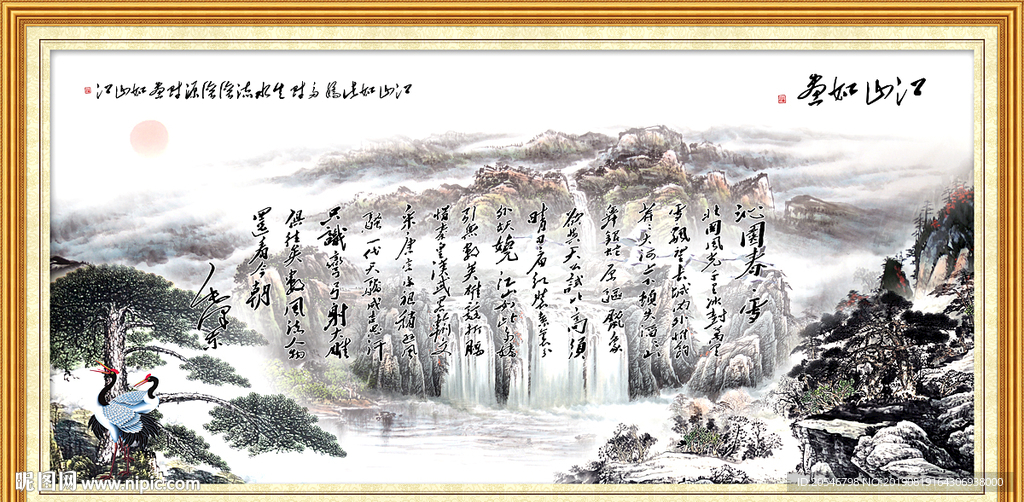 江山如畫
沁園春·雪
北国风光千里冰封万里
雪飘望长城内外惟余
莽莽大河上下顿失滔滔山
舞银蛇原驰蜡象
欲与天公试比高须
晴日看红装素裹
分外妖娆江山如此多娇
引无数英雄竞折腰
惜秦皇汉武略输文
采唐宗宋祖稍逊风
骚一代天骄成吉思汗
只識弯弓射大雕
俱往矣数风流人物
還看今朝
毛泽东
昵图网 www.nipic.com
ID:20546798 NO:20190819164306938000